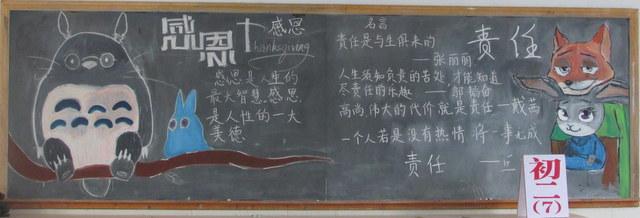 感恩
感恩
Thanksgiving
感恩是人生的
最大智慧.感恩
是人性的一大
美德
名言
责任是与生俱来的
——张丽丽
人生须知负责的苦处 才能知道
尽责任的乐趣 ——
高尚 伟大的代价 就是责任 —
一个人若是没有热情 将一事无成
责任
责任
初二
(7)